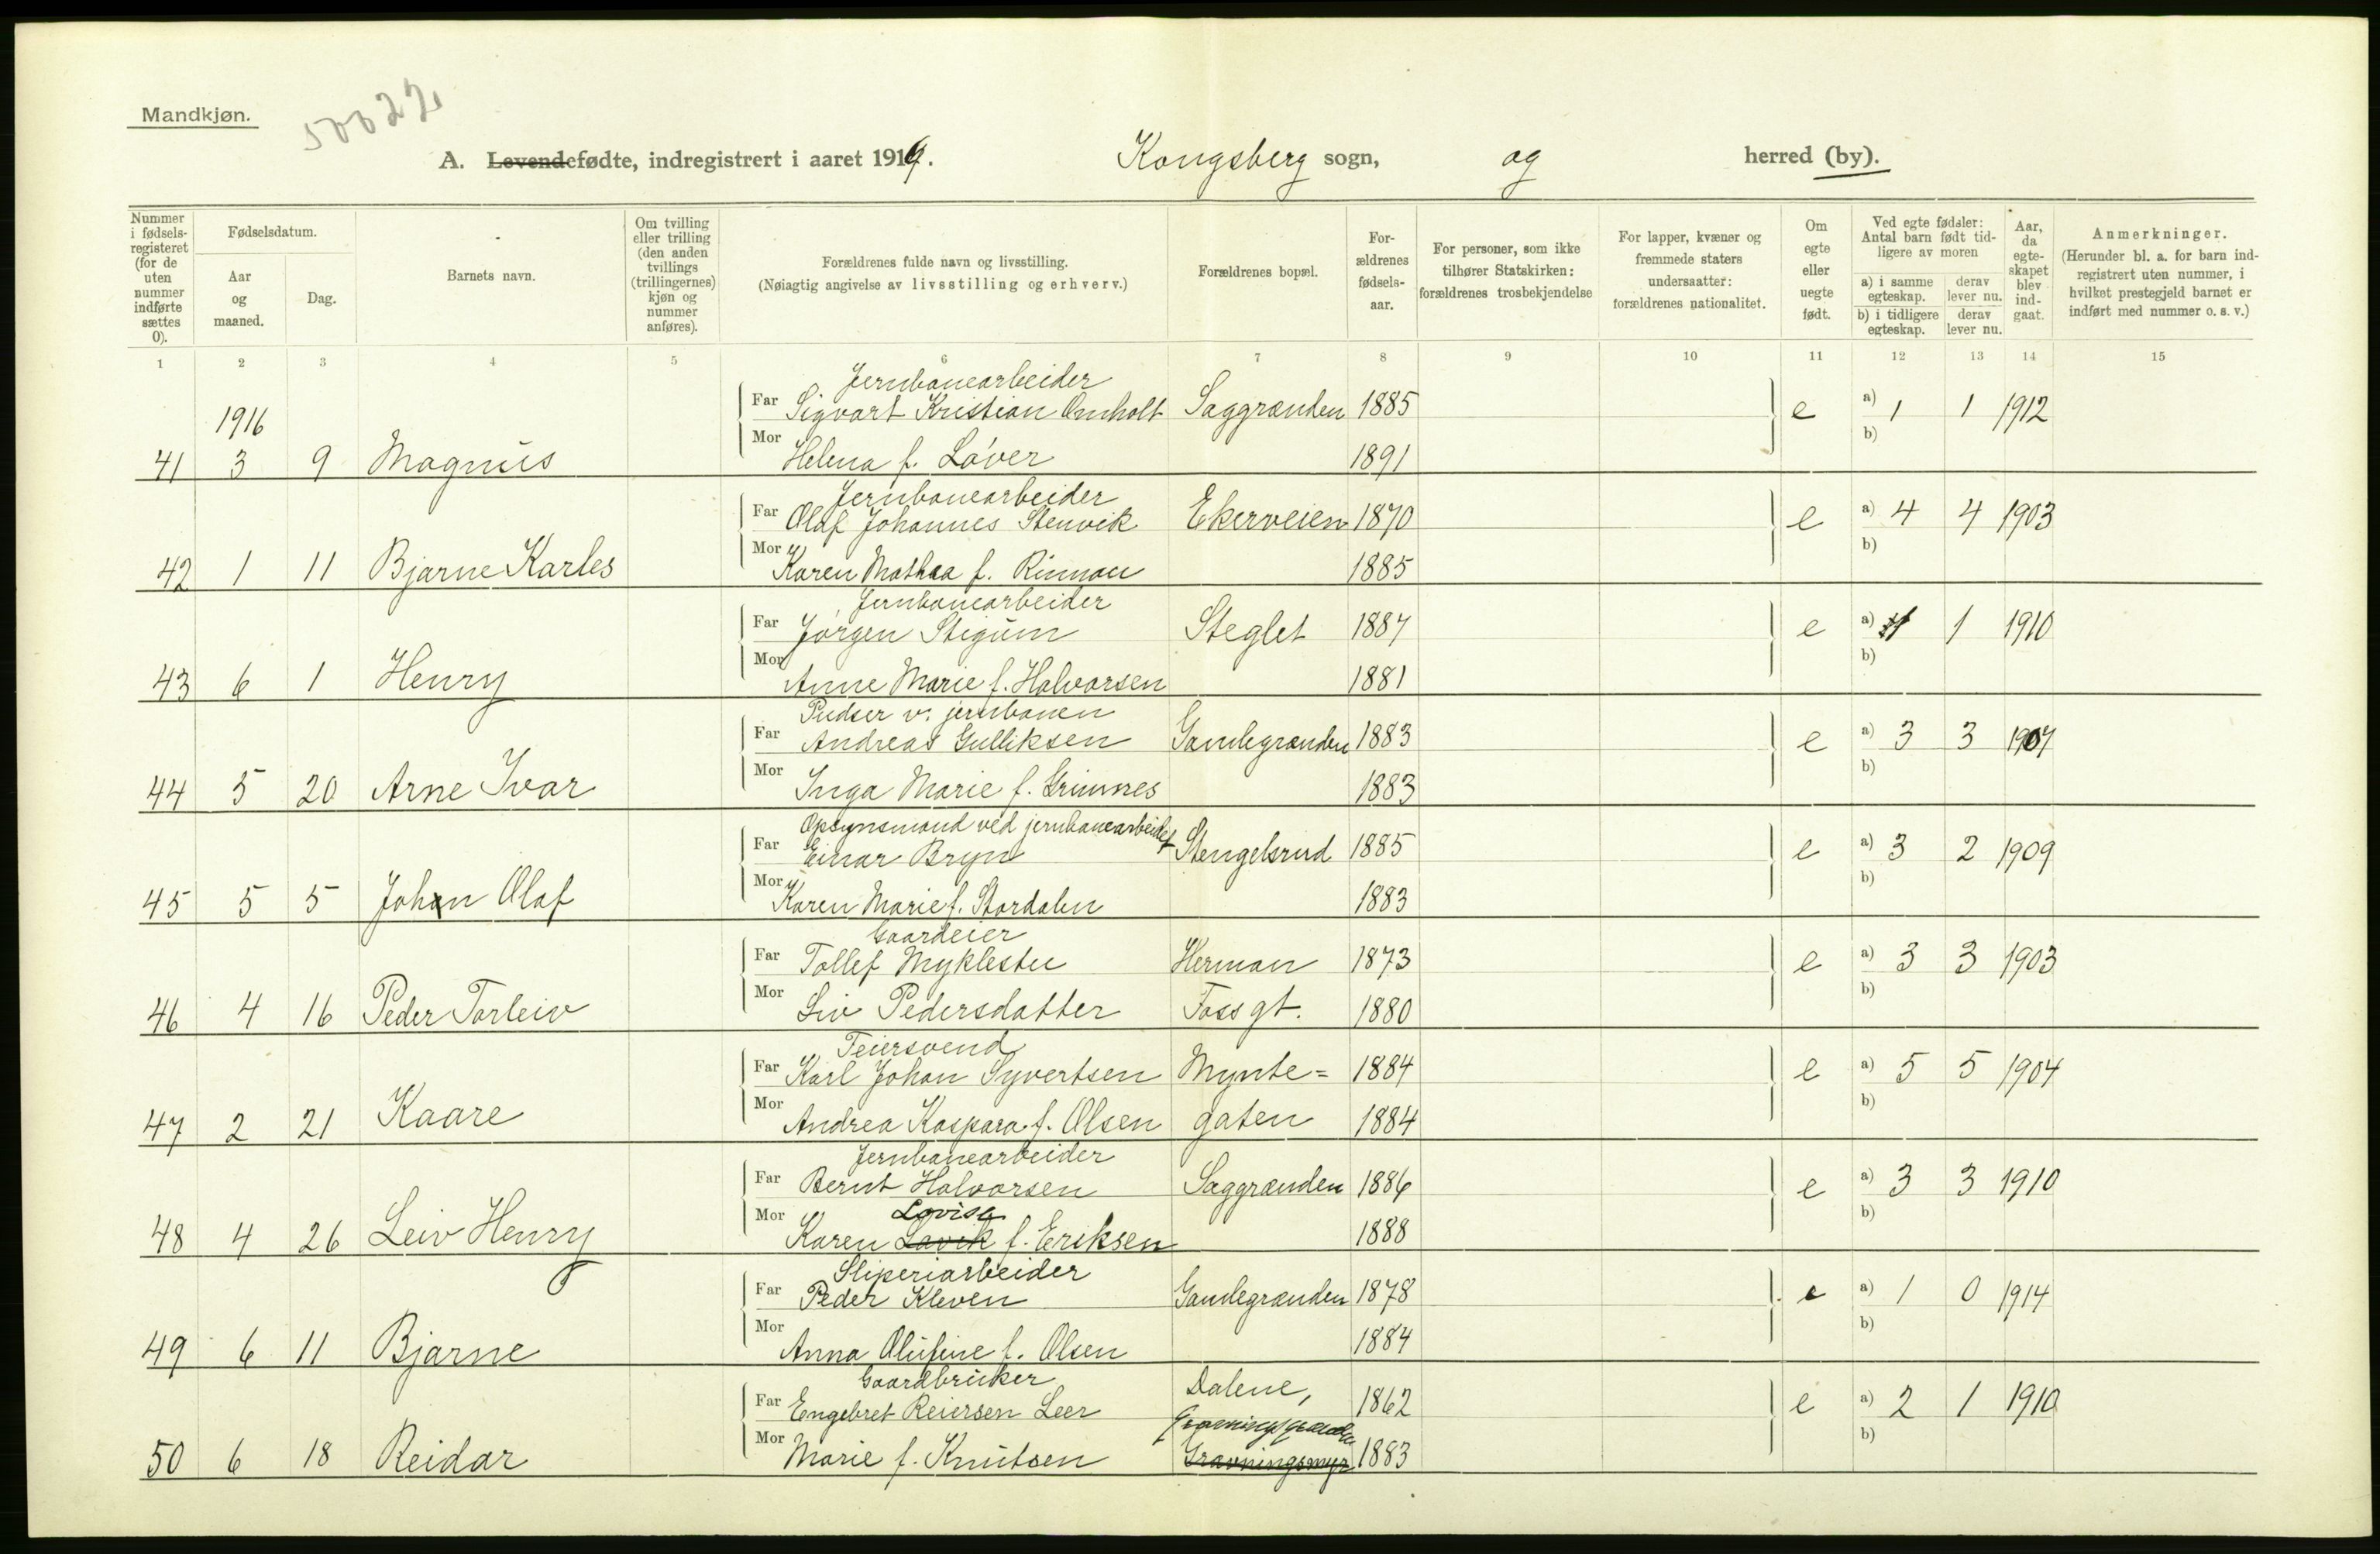 Mandkjøn.
50022
A. Levendefødte, indregistrert i aaret 1916. Kongsberg sogn, og herred (by).
Nummer i fødsels-registeret (for de uten nummer indførte sættes 0).
Fødselsdatum.
Aar og maaned.
Dag.
Barnets navn.
Om tvilling eller trilling (den anden tvillings (trillingernes) kjøn og nummer anføres).
Forældrenes fulde navn og livsstilling.
(Nøiagtig angivelse av livsstilling og erhverv.)
Forældrenes bopæl.
For-ældrenes fødsels-aar.
For personer, som ikke tilhører Statskirken: forældrenes trosbekjendelse
For lapper, kvæner og fremmede staters undersaatter: forældrenes nationalitet.
Om egte eller uegte født.
Ved egte fødsler: Antal barn født tid-ligere av moren
a) i samme egteskap.
derav lever nu.
b) i tidligere egteskap.
derav lever nu.
Aar, da egte-skapet blev ind-gaat.
Anmerkninger.
(Herunder bl. a. for barn ind-registrert uten nummer, i hvilket prestegjeld barnet er indført med nummer o. s. v.)
1 2 3 4 5 6 7 8 9 10 11 12 13 14 15
Jernbanearbeider
1916 Far Sigvart Kristian Omholt Saggrænden 1885 e a) 1 1 1912
b)
41 3 9 Magnus Mor Helena f. Løver 1891
Jernbanearbeider
Far Olaf Johannes Stenvik Ekerveien 1870 e a) 4 4 1903
b)
42 1 11 Bjarne Karles Mor Karen Mathea f. Rinnan 1885
Jernbanearbeider
Far Jørgen Stigum Steglet 1887 e a) 1 1 1910
b)
43 6 1 Henry Mor Anne Marie f. Halvorsen 1881
Pudser v. jernbanen
Far Andreas Gulliksen Gamlegrænden 1883 e a) 3 3 1907
b)
44 5 20 Arne Ivar Mor Inga Marie f. Grimnes 1883
Opsynsmand ved jernbanearbeidet
Far Einar Bryn Stengelsrud 1885 e a) 3 2 1909
b)
45 5 5 Johan Olaf Mor Karen Marie f. Stordalen 1883
Gaardeier
Far Tollef Myklestu Herman 1873 e a) 3 3 1903
b)
46 4 16 Peder Torleiv Mor Liv Pedersdatter Foss gt. 1880
Feiersvend
Far Karl Johan Syvertsen Mynte= 1884 e a) 5 5 1904
b)
47 2 21 Kaare Mor Andrea Kaspara f. Olsen gaten 1884
Jernbanearbeider
Far Bernt Halvorsen Saggrænden 1886 e a) 3 3 1910
Lovise
b)
48 4 26 Leiv Henry Mor Karen Lavik f. Eriksen 1888
Sliperiarbeider
Far Peder Kleven Gamlegrænden 1878 e a) 1 0 1914
b)
49 6 11 Bjarne Mor Anna Olufine f. Olsen 1884
Gaardbruker
Far Engebret Reiersen Leer Dalene, 1862 e a) 2 1 1910
b)
50 6 18 Reidar Mor Marie f. Knutsen Gravningsmyr 1883